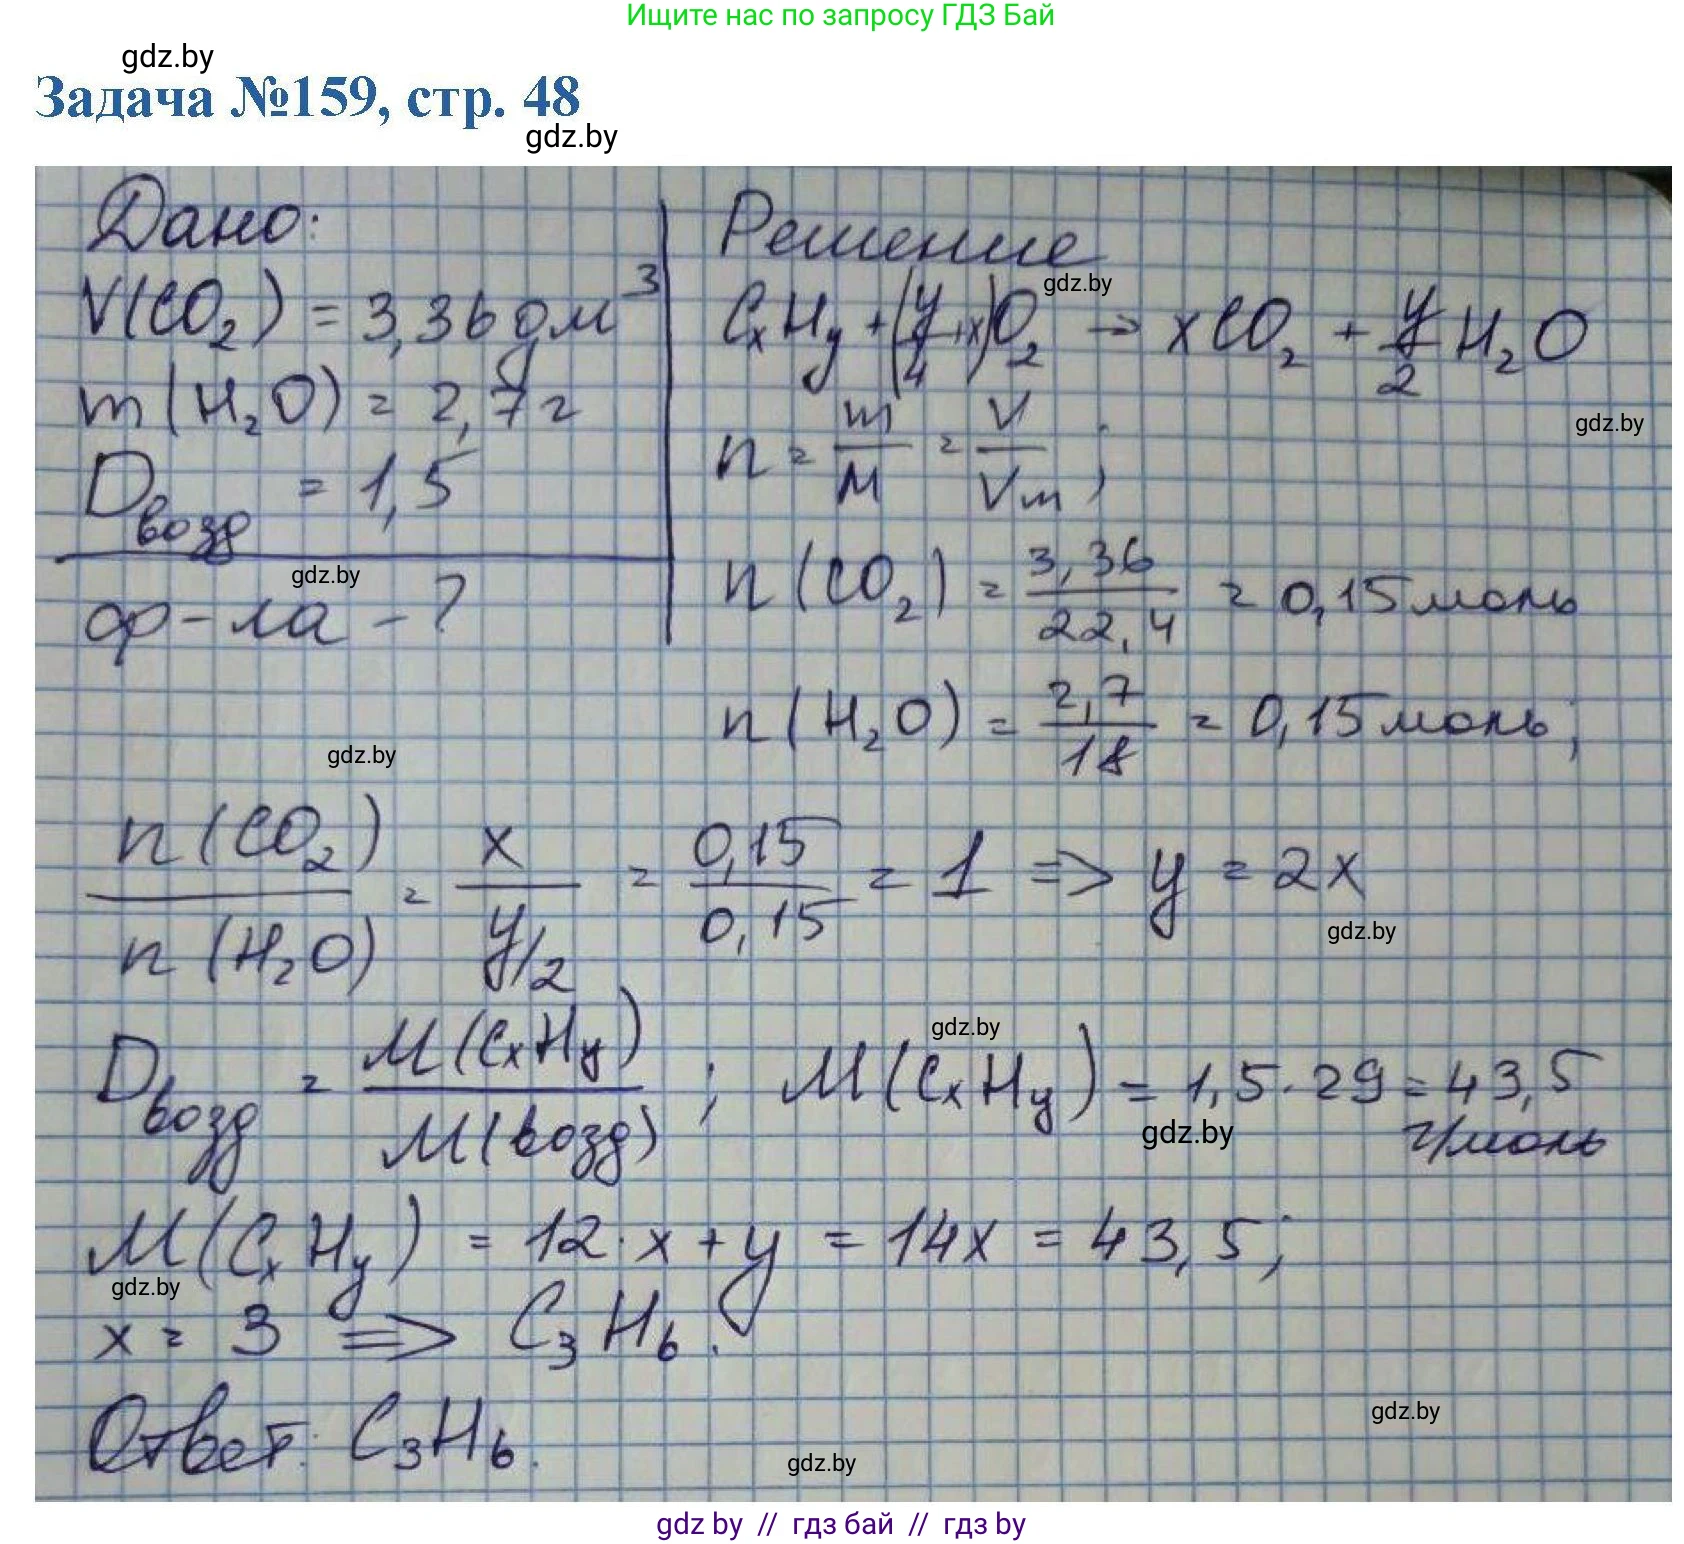 Ищите нас по запросу ГДЗ Бай
gdz.by
Задача №159, стр. 48
gdz.by
Дано:
V(CO₂) = 3,36 дм³
m(H₂O) = 2,7г
Dвозд = 1,5
gdz.by
ф-ла - ?
Решение
gdz.by
CₓHy + (y/4 + x)O₂ → xCO₂ + y/2 H₂O
gdz.by
n = m/M = V/Vm;
n(CO₂) = 3,36/22,4 = 0,15моль
n(H₂O) = 2,7/18 = 0,15моль;
gdz.by
n(CO₂)/n(H₂O) = x/y/2 = 0,15/0,15 = 1 => y = 2x
gdz.by
gdz.by
Dвозд = M(CₓHy)/M(возд); M(CₓHy) = 1,5·29 = 43,5
г/моль
gdz.by
M(CₓHy) = 12·x + y = 14x = 43,5;
gdz.by
x = 3 => C₃H₆.
gdz.by
Ответ: C₃H₆.
gdz.by
gdz by // гдз бай // гдз by